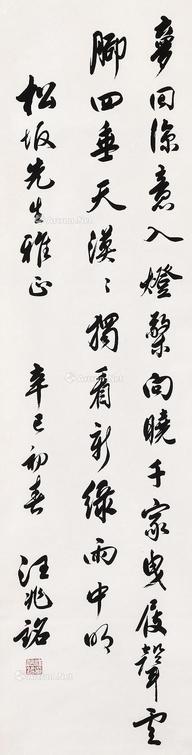 夢回涼意入燈檠向曉千家曳屐聲雲
腳四垂天漠〻獨看新綠雨中明
松坂先生雅正 辛巳初春 汪兆銘